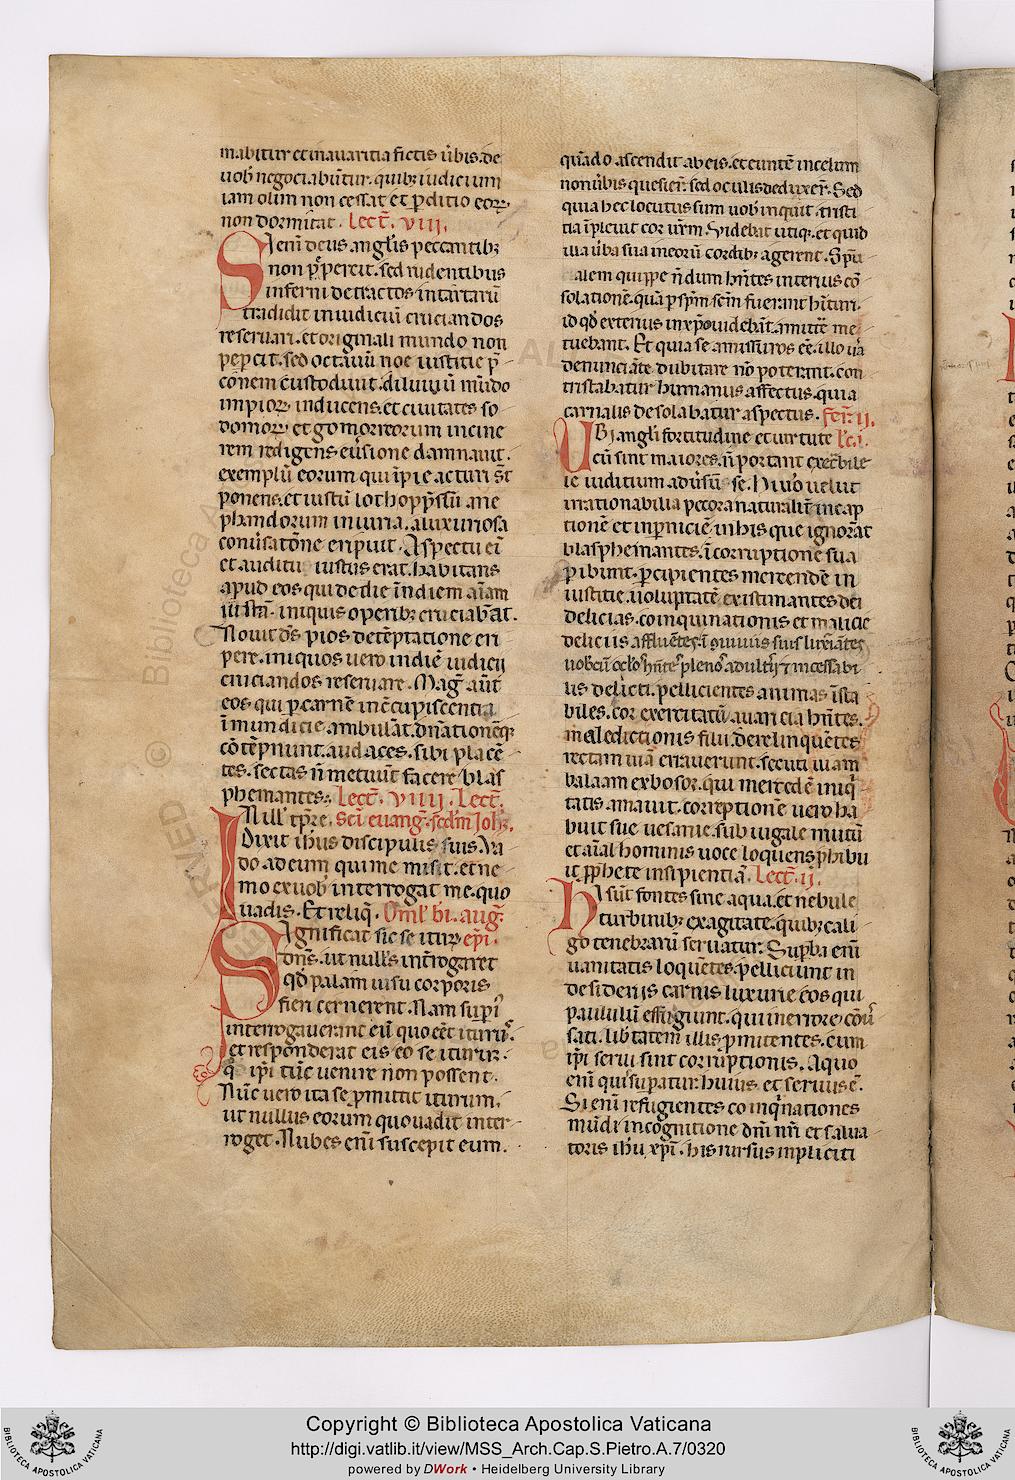 mabitur et in auaritia fictis u̅bis. de
uob̅ negociabu̅tur. quibꝫ iudicium
iam olim non cessat et ꝑditio eoꝝ
non dormitat. Lect̅. viii.
Si eni̅ deus angl̅is peccantibꝫ
non pep̅ercit. sed rudentibus
inferni detractos in tartaru̅
tradidit in iudiciu̅ cruciandos
reseruari. et originali mundo non
peꝑcit. sed octauu̅ noe iustitie p̅
co̅nem custodiuit. diluuiu̅ mu̅do
impioꝝ inducens. et ciuitates so
domoꝝ et gomorreorum in cine
rem redigens eu̅sione damnauit.
exemplu̅ eorum qui i̅pie acturi su̅t
ponens. et iustu̅ loth opp̅ssu̅ a ne
phandorum iniuria. a luxuriosa
conu̅satio̅ne eripuit. Aspectu ei̅
et auditu iustus erat. habitans
apud eos qui de die i̅n diem a̅iam
iusta̅ iniquis operibꝫ cruciaba̅t.
Nouit do̅s pios de te̅ptatione eri
pere. iniquos uero in die̅ iudicij
cruciandos reseruare. Mag̅ aut̅
eos qui p̅ carne̅ in co̅cupiscentia
i̅mundicie ambula̅t. dn̅atione̅qꝫ
co̅te̅pnunt. audaces. sibi place̅
tes. sectas n̅ metuu̅t facere blas
phemantes. Lect̅. viiii. Lect̅.
In ill̅ tp̅re. Sc̅i euang̅. sed̅m Joh̅.
Dixit ih̅us discipulis suis. Va
do ad eum qui me misit. et ne
mo ex uob̅ interrogat me. quo
uadis. Et reliq̅. Oml̅ b̅i. aug̅.
Significat sic se ituꝝ ep̅i.
don̅s. ut null̅s int̅rogaret
qd̅ palam uisu corporis
fieri cernerent. Nam sup̅i
interrogauerant eu̅ quo e̅et ituru̅.
et responderat eis eo se iturum.
q̅ ip̅i tu̅c uenire non possent.
Nu̅c uero ita se ꝓmittit iturum.
ut nullus eorum quo uadit inter
roget. Nubes eni̅ suscepit eum.
qua̅do ascendit ab eis. et eunte̅ in celum
non u̅bis quesier̅. sed oculis deduxer̅. Sed
quia hec locutus sum uob̅ inquit. tristi
tia i̅pleuit cor ur̅m. Videbat utiqꝫ. et quid
illa u̅ba sua in eoru̅ cordibꝫ agerent. Sp̅u
alem quippe n̅dum h̅ntes interius co̅
solatione̅. qua̅ p̅ sp̅m sc̅m fuerant h̅ituri.
id qd̅ exterius in xp̅o uideba̅t. amitte̅ me
tuebant. Et quia se amissuros e̅e. illo u̅a
denuncia̅te dubitare no̅ poterant. con
tristabatur humanus affectus. quia
carnalis desolabatur aspectus. fer̅. ii.
Ubi angl̅i fortitudine et uirtute lc̅. i.
cu̅ sint maiores. n̅ portant execr̅bile
iudicium adu̅su̅ se. Hi u̅o uelut
irrationabilia pecora naturalit̅ in cap
tione̅ et in p̅nicie̅ in his que ignora̅t
blasphemantes. i̅ corruptione sua
p̅ibunt. ꝑcipientes mercende̅ in
iustitie. uoluptate̅ existimantes diei
delicias. coinquinationis et malicie
deliciis afflue̅tes. i̅ conuiuiis suis luxuria̅tes
uobcu̅. oc̅los h̅nte̅s plenos adult̅ij ⁊ incessabi
lis delicti. pellicientes animas i̅sta
biles. cor exercitatu̅ auaricia h̅ntes.
maledictionis filii. derelinque̅tes
rectam uia̅ errauerunt. secuti uiam
balaam ex bosor. qui mercede̅ iniq̅
tatis amauit. correptione̅ uero ha
buit sue uesanie. subiugale mutu̅
et ai̅al hominis uoce loquens p̅hibu
it pp̅hete insipientia̅. Lect̅. ij.
Hi su̅t fontes sine aqua. et nebule
turbinibꝫ exagitate. quibꝫ cali
go tenebraru̅ seruatur. Sup̅ba eni̅
uanitatis loque̅tes. pelliciunt in
desiderijs carnis luxurie eos qui
paululu̅ effugiunt. qui in errore co̅u̅
sati. lib̅tatem illis ꝓmitentes. cum
ip̅i serui sint corruptionis. A quo
eni̅ quis sup̅atur. huius et seruus e̅.
Si eni̅ refugientes coinq̅nationes
mu̅di in cognitione dn̅i nr̅i et salua
toris ih̅u xp̅i. his rursus impliciti
Copyright © Biblioteca Apostolica Vaticana
http://digi.vatlib.it/view/MSS_Arch.Cap.S.Pietro.A.7/0320
powered by DWork • Heidelberg University Library
BIBLIOTECA APOSTOLICA VATICANA
BIBLIOTECA APOSTOLICA VATICANA